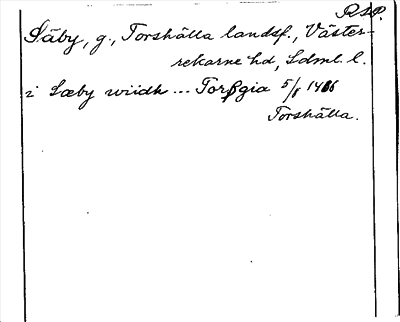 R.S.P.
Säby, g., Torshälla landsf., Väster-
rekarne hd, Sdml. l.
i Sæby wiidh ... Torsgia 5/8 1486
Torshälla.